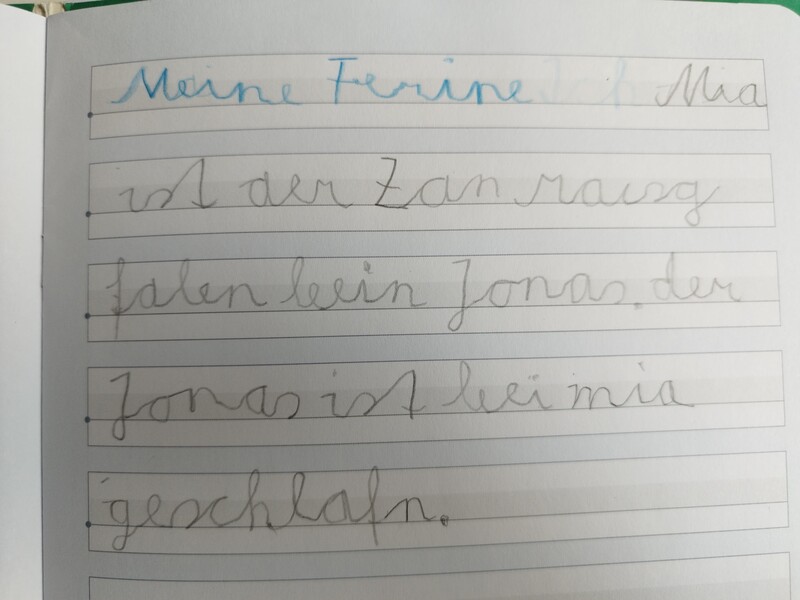 Meine Ferine Mia
ist der Zan rausg
falen bein Jonas. der
Jonas ist bei mia
geschlafn.